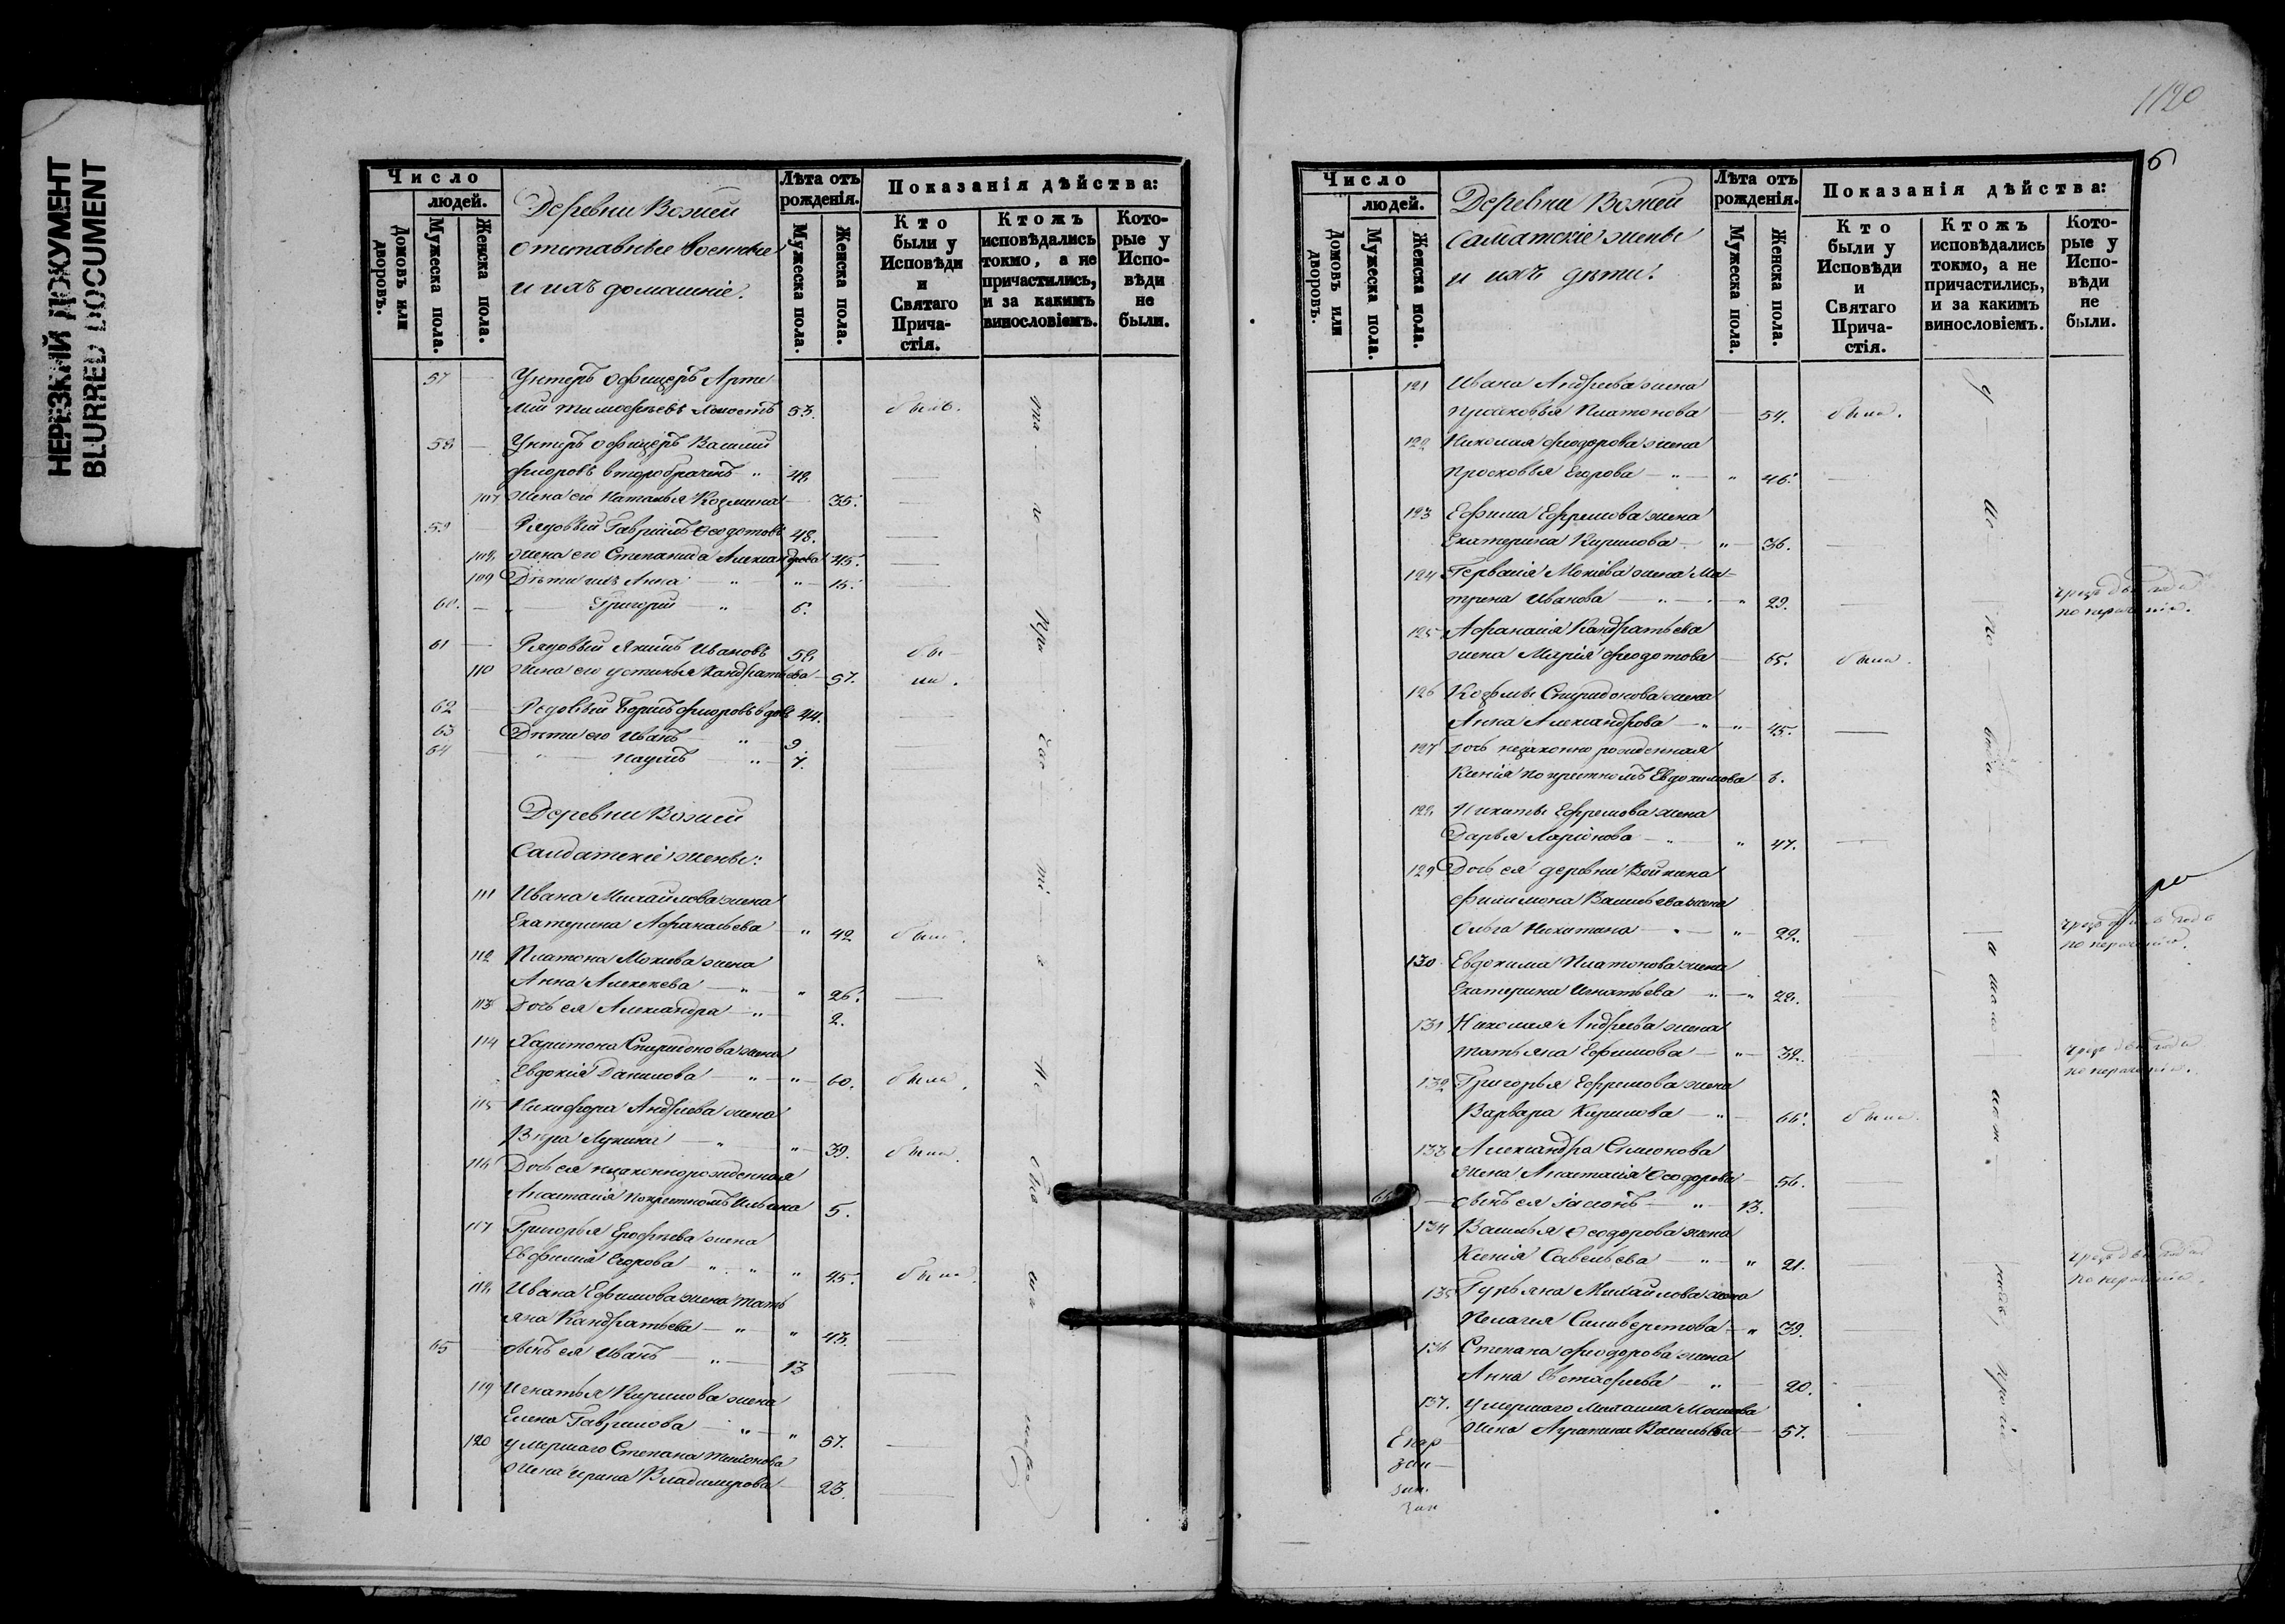 НЕРЕЗКИЙ ДОКУМЕНТ
BLURRED DOCUMENT
Число
людей.
Домовъ или дворовъ.
Мужеска пола.
Женска пола.
Деревни Вожей
отставные военные
и ихъ домашніе.
Лѣта отъ рожденія.
Мужеска пола.
Женска пола.
Показанія дѣйства:
Кто были у Исповѣди и Святаго Причастія.
Ктожъ исповѣдались токмо, а не причастились, и за какимъ винословіемъ.
Которые у Исповѣди не были.
57 Унтеръ офицеръ Арте
мій Тимофѣевъ холостъ 53. былъ.
58 Унтеръ офицеръ
второбраченъ 42
107 жена его Наталья Козмина 35.
59 Рядовый Гавріилъ Ѳеодотовъ 48.
108 жена его Степанида Александрова 45.
109 Дѣти ихъ Анна 15.
60. Григорій 6.
61 Рядовый Якимъ Ивановъ 58 бы
110 жена его Устинья Кандратьева 57. ли.
62 Рядовый вдовъ 44.
63 Дѣти его Иванъ 9
64 Наумъ 7.
Деревни Вожей
Салдатскіе жены:
111 Ивана Михайлова жена
Екатерина Афанасьева 42 была.
112 Платона Мокіева жена
Анна Алексеева 26.
113 Дочь ея Александра 2.
114 Харитона Спиридонова жена
Евдокія Данилова 60. была.
115 Никифора Андреева жена
Вѣра 39. была.
116 Дочь ея незаконнорожденная
Анастасія по крестномъ Ильина 5.
117 Григорья Ерофѣева жена
Евфимія Егорова 45. была.
118 Ивана Ефимова жена Тать
яна Кандратьева 43.
65 сынъ ея Иванъ 13
119 Игнатья Кирилова жена
Елена Гаврилова 57.
120 умершаго Степана
жена Ирина Владимирова 23.
1120
6
Число
людей.
Домовъ или дворовъ.
Мужеска пола.
Женска пола.
Деревни Вожей
Салдатскіе жены
и ихъ дѣти.
Лѣта отъ рожденія.
Мужеска пола.
Женска пола.
Показанія дѣйства:
Кто были у Исповѣди и Святаго Причастія.
Ктожъ исповѣдались токмо, а не причастились, и за какимъ винословіемъ.
Которые у Исповѣди не были.
121 Ивана Андреева жена
Прасковья Платонова 54. была.
122 Николая Феодорова жена
Просковья Егорова 46.
123 Ефима Ефремова жена
Екатерина Кирилова 36.
124 Гервасія Мокіева жена Ма-
трена Иванова 29. чрезъ два года
по нераченію.
125 Афанасія Кандратьева
жена Марія Феодотова 65. была.
126 Козьмы Спиридонова жена
Анна Александрова 45.
127 дочь незаконно рожденная
Ксенія по крестномъ Евдокимова 6.
128 Никиты Ефремова жена
Дарья Ларіонова 47.
129 Дочь ея деревни Войкина
Филимона Васильева жена
Ольга Никитина 22. по нераченію.
130 Евдокима Платонова жена
Екатерина Игнатьева 22.
131 Николая Андреева жена
Татьяна Ефимова 32. чрезъ два года
по нераченію.
132 Григорья Ефремова жена
Варвара Кирилова 66. была.
133 Александра Симонова
жена Анастасія Ѳеодорова 56.
сынъ ея 13.
134 Василья Ѳеодорова жена
Ксенія Савельева 21. чрезъ два года
по нераченію.
135 Гурьяна Михайлова жена
Пелагея Сильверстова 39.
136 Степана Феодорова жена
Анна Евстафиева 20.
137. умершаго
жена Васильева 57.